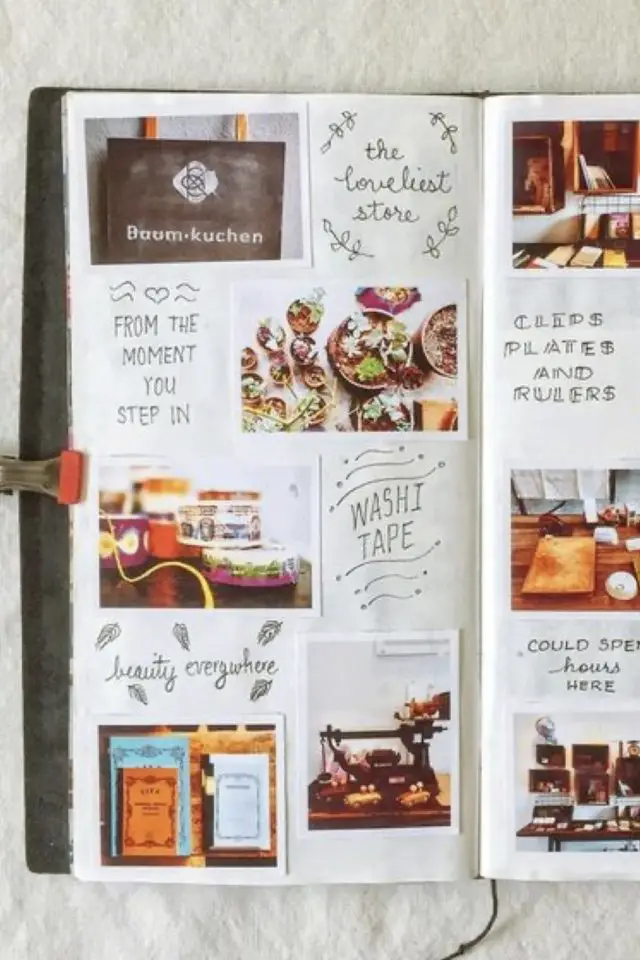 Baum·kuchen
the
loveliest
store
FROM THE
MOMENT
YOU
STEP IN
WASHI
TAPE
beauty everywhere
LIFE
CLIPS
PLATES
AND
RULERS
COULD SPEN
hours
HERE